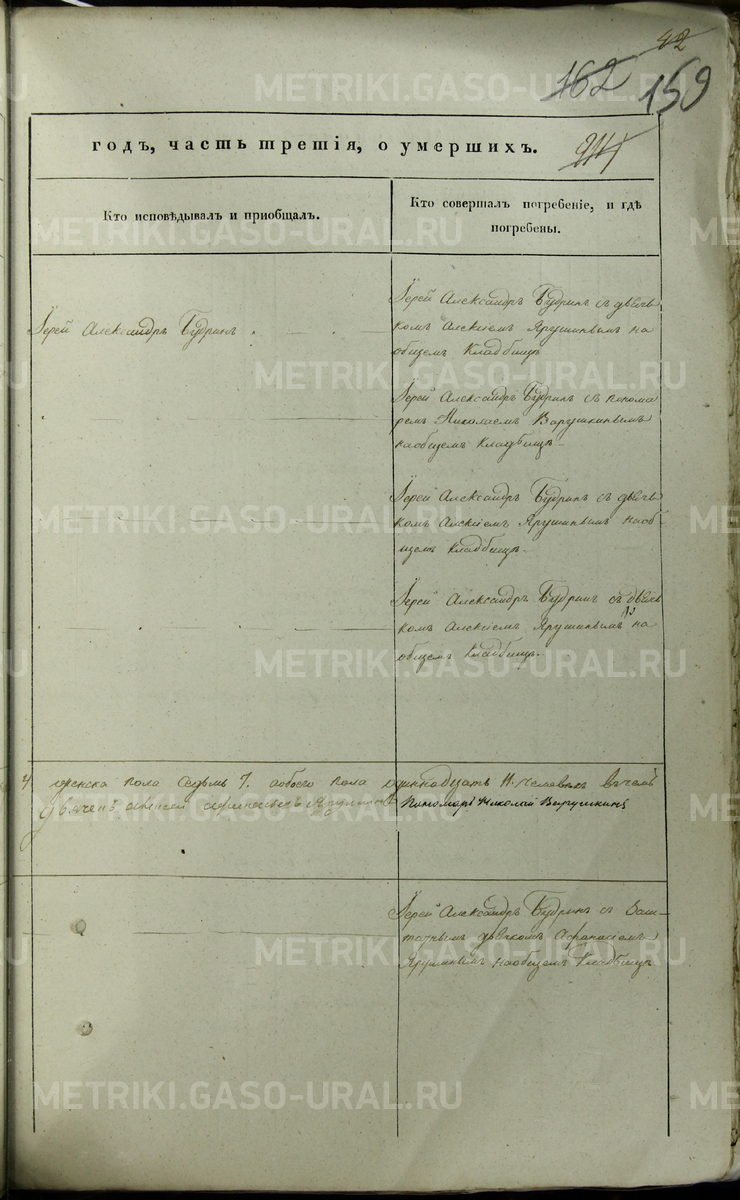 42
162
159
METRIKI.GASO-URAL.RU
годъ, часть третія, о умершихъ.
Кто исповѣдывалъ и пріобщалъ.
Кто совершалъ погребеніе, и гдѣ
погребены.
Іерей Александръ Будринъ
Іерей Александръ Будринъ съ дьяч
комъ Алексіемъ Ярушинымъ на
общемъ Кладбищѣ
Іерей Александръ Будринъ съ понома
ремъ Николаемъ Варушкинымъ
наобщемъ Кладбищѣ
Іерей Александръ Будринъ съ дьяч
комъ Алексіемъ Ярушинымъ наоб
щемъ Кладбищѣ.
Іерей Александръ Будринъ съ дьяч
комъ Алексіемъ Ярушинымъ на
общемъ Кладбищѣ.
4, женска пола седмь 7. обоего пола одиннадцать 11. человѣкъ въчемъ
Дьячекъ Алексѣй
Пономарь Николай Варушкинъ
Іерей Александръ Будринъ съ Заш-
татнымъ дьячкомъ Афанасіемъ
Ярушинымъ наобщемъ Кладбищѣ